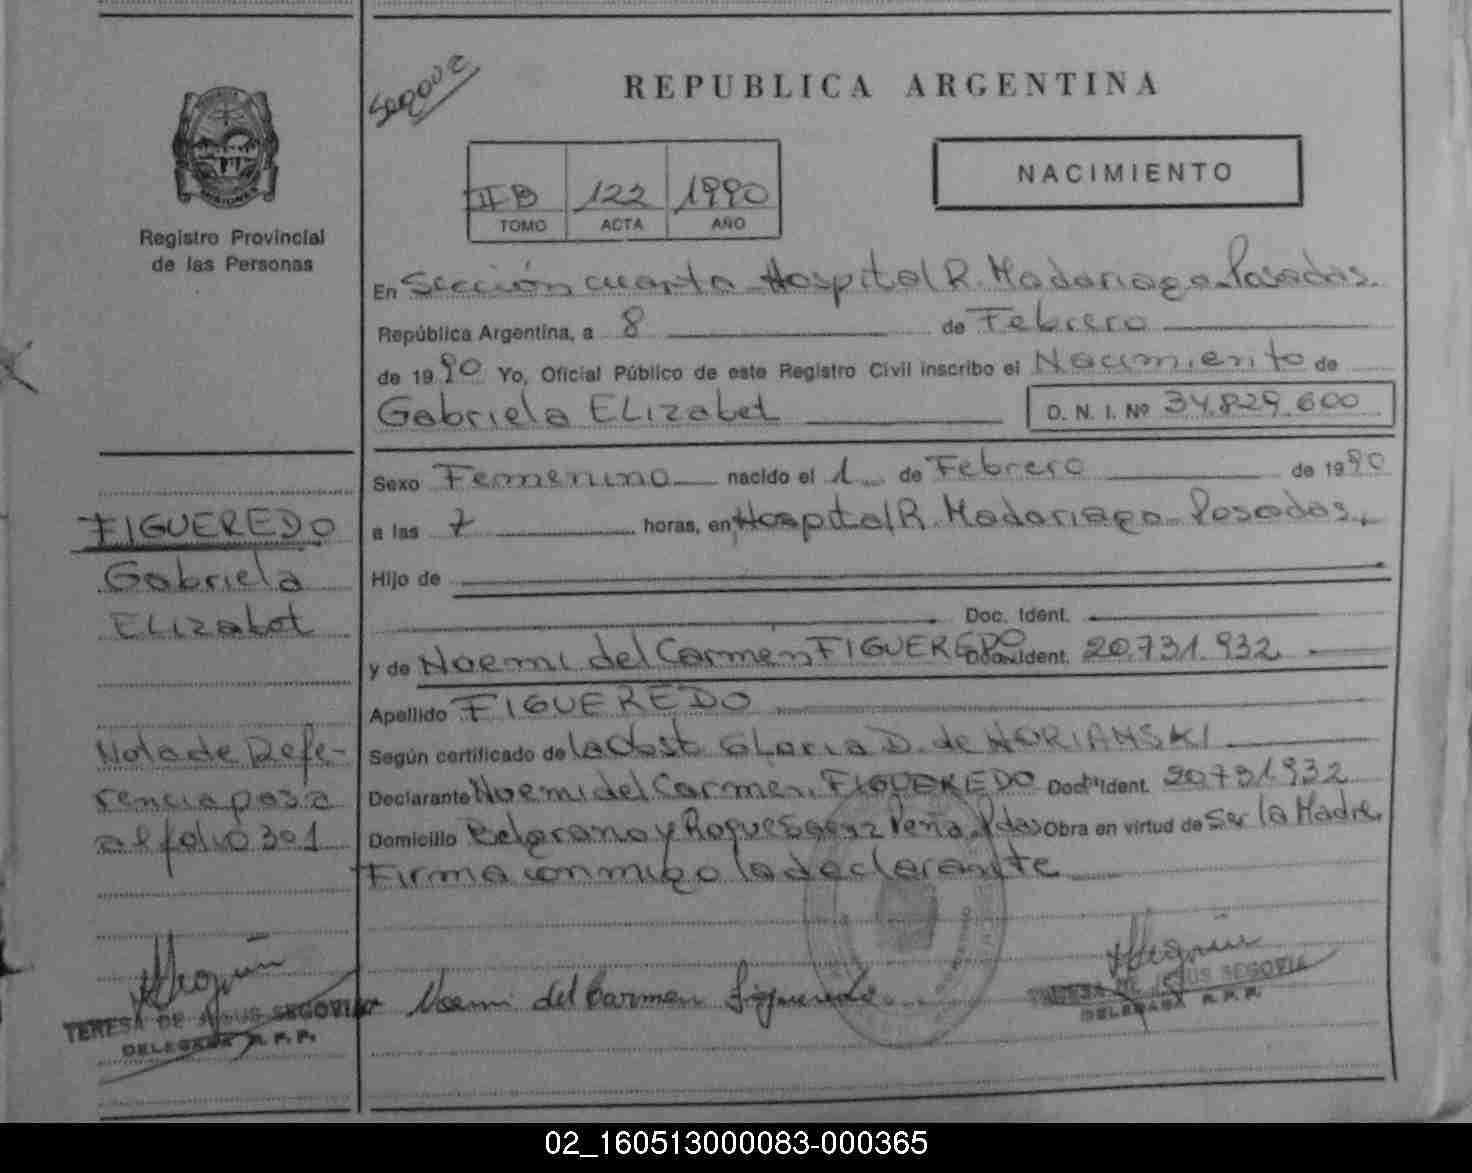 REPUBLICA ARGENTINA
NACIMIENTO
II B 122 1990
TOMO ACTA AÑO
Registro Provincial
de las Personas
En Sección cuarta Hospital R. Madariaga Posadas.
República Argentina, a 8 de Febrero
de 1990 Yo, Oficial Público de este Registro Civil inscribo el Nacimiento de
Gabriela ELizabet D. N. I. Nº 34.829.600
Sexo Femenino nacido el 1 de Febrero de 1990
a las 7 horas, en Hospital R. Madariaga Posadas.
Hijo de
Doc. Ident.
y de Noemi del Carmen FIGUEREDO Doc. Ident. 20.731.932
Apellido FIGUEREDO
Según certificado de la Obst. GLoria D. de
Declarante Noemi del Carmen FIGUEREDO Doc. Ident. 20.731.932
Domicilio Belgrano y Roque Saenz Peña Pdas Obra en virtud de ser la Madre.
Firma conmigo la declarante
FIGUEREDO
Gabriela
ELizabet
Nota de Refe-
rencia pasa
al folio 301
Noemi del Carmen Figueredo
TERESA DE JESUS SEGOVIA
DELEGADA R. P. P.
TERESA DE JESUS SEGOVIA
DELEGADA R. P. P.
02_160513000083-000365